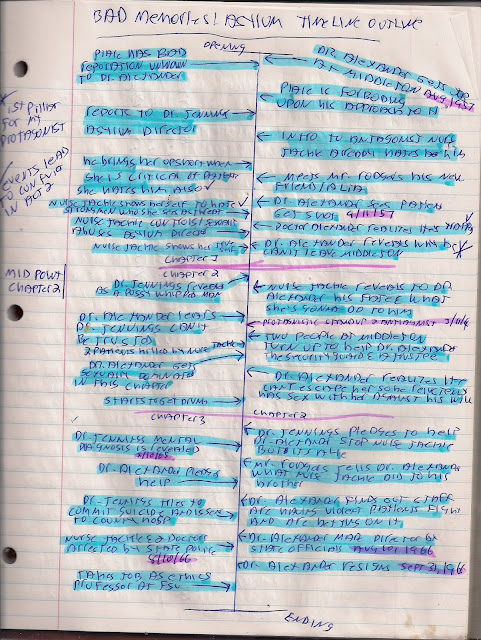 BAD MEMORIES! ASYLUM TIMELINE OUTLINE
OPENING
PLACE HAS BAD
REPUTATION UNKNOWN
TO DR. ALEXANDER
DR. ALEXANDER GETS JOB
AT MIDDLETON AUG, 1957
PLACE IS FORBODING
UPON HIS APPROACH TO IT
1ST PILLAR
FOR MY
PROTAGONIST
REPORTS TO DR JENNINGS
ASYLUM DIRECTOR
INTRO TO ANTAGONIST NURSE
JACKIE ALREADY HATES HIM
EVENTS LEAD
TO
IN ACT 2
HE BRINGS HER UPSHORT WHEN
SHE IS CRITICAL OF PATIENT
SHE HATES HIM ALSO
MEETS MR RODGERS HIS NEW
FRIEND/ALLY
NURSE JACKIE SHOWS HERSELF TO HATE
STRONG MEN WHO SHE SEES AS THREAT
DR ALEXANDER SEES PATIENT
GET SHOT 9/11/57
NURSE JACKIE CONTROLS
ABUSES ASYLUM DIRECTOR
DOCTOR ALEXANDER REALIZES ITS
NURSE JACKIE SHOWS HER TRUE
DR. ALEXANDER REVEALS WHY HE
CAN'T LEAVE MIDDLETON
CHAPTER 1
MIDPOINT
CHAPTER 2
CHAPTER 2
DR. JENNINGS REVEALED
AS A PUSSY WHIPPED MAN
NURSE JACKIE REVEALS TO DR
ALEXANDER HIS FATE & WHAT
SHE'S GONNA DO TO HIM
DR. ALEXANDER LEARNS
DR JENNINGS CAN'T
BE TRUSTED
PROTAGONIST STANDUP 2 ANTAGONIST
2 PATIENTS KILLED BY NURSE JACKIE
TWO PEOPLE AT MIDDLETON
TURN UP TO HELP DR. ALEXANDER
THE SECURITY GUARD & A TRUSTEE
DR. ALEXANDER GETS
SEXUALLY DOMINATED
IN THIS CHAPTER
DR. ALEXANDER REALIZES HE
CANT ESCAPE HER SO HE RELUCTANTLY
HAS SEX WITH HER AGAINST HIS WILL
STARTS TO GET DRUNK
CHAPTER 3
CHAPTER 2
DR. JENNINGS MENTAL
DIAGNOSIS IS REVEALED
DR. JENNINGS PLEDGES TO HELP
DR. ALEXANDER STOP NURSE JACKIE
BUT ITS A LIE
DR. ALEXANDER PLEDGES
HELP
MR. RODGERS TELLS DR. ALEXANDER
WHAT NURSE JACKIE DID TO HIS
BROTHER
DR. JENNINGS TRIES TO
COMMIT SUICIDE AND IS SENT
TO COUNTY HOSP
DR ALEXANDER FINDS OUT STAFF
ARE HAVING VIOLENT PATIENTS FIGHT
AND ARE BETTING ON IT.
NURSE JACKIE & 2 DOCTORS
ARRESTED BY STATE POLICE
8/10/66
DR. ALEXANDER MADE DIRECTOR BY
STATE OFFICIALS AUG 10, 1966
TAKES JOB AS ETHICS
PROFESSOR AT FSU
DR. ALEXANDER RESIGNS SEPT 31, 1966
ENDING